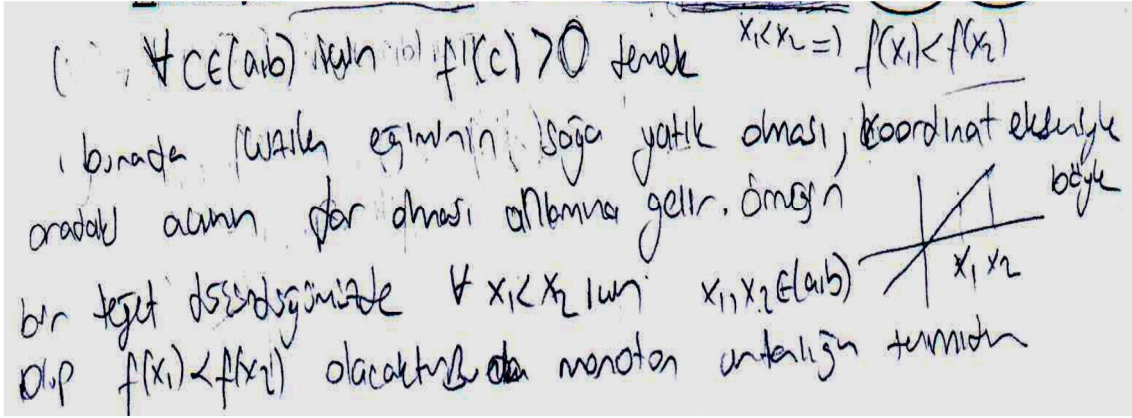 ∀ c∈(a,b) için f'(c) > 0 demek x₁<x₂ => f(x₁)<f(x₂)
burada eğiminin sağa yatık olması, koordinat ekseniyle
aradaki açının dar olması anlamına gelir. Örneğin böyle
bir teğet düşündüğümüzde ∀ x₁<x₂ için x₁,x₂∈(a,b) x₁ x₂
olup f(x₁)<f(x₂) olacaktır. Bu da monoton artanlığın tanımıdır